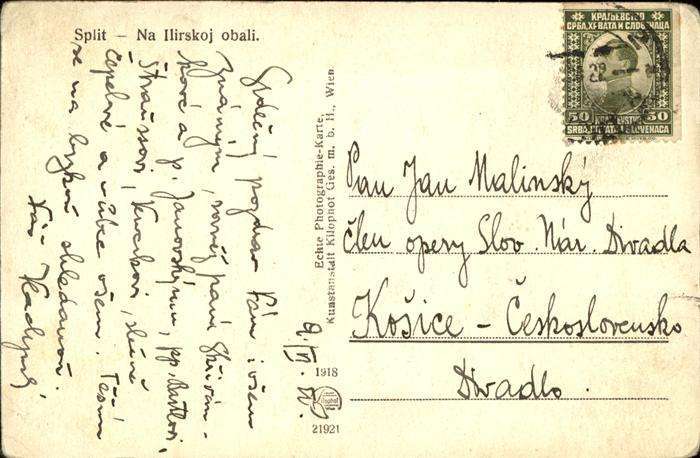 Split — Na Ilirskoj obali.
КРАЉЕВСТВО
СРБА, ХРВАТА И СЛОВЕНАЦА
50 KRALJEVSTVO 50
SRBA, HRVATA I SLOVENACA
Srdečný pozdrav Vám i všem
známým, rovněž paní
kové a p. Janovskému, pp.
Štraussovi, Kuchovi, slečně
Čapkové a vůbec všem. Těším
se na brzké shledanou.
Váš
9./VI.
Echte Photographie-Karte,
Kunstanstalt Kilophot Ges. m. b. H., Wien.
1918
21921
Pan Jan Malinský
člen opery Slov. Nár. Divadla
Košice — Československo
Divadlo.